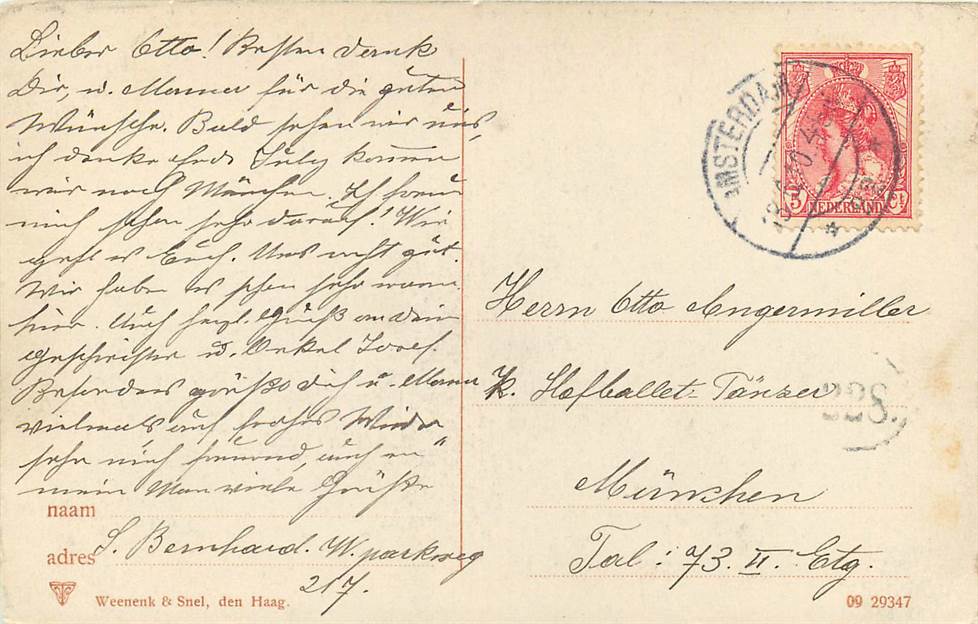 Lieber Otto! Besten Dank
Dir, u. Mama für die guten
Wünsche. Bald sehen wir uns,
ich denke Ende July kommen
wir nach München. Ich freue
mich schon sehr darauf! Wie
geht es Euch. Uns geht gut.
Wir haben es schon sehr warm
hier. Auch herzl. Gruß an Dein
Geschwister u. Onkel Josef.
Besonders grüße dich u. Mama
vielmals auf frohes Wieder
sehn mich freuend, auch von
mein Mann viele Grüße
naam
adres S. Bernhard. W. parkweg
217.
Weenenk & Snel, den Haag.
AMSTERDAM
5 NEDERLAND Ct
Herrn Otto Angermiller
K. Hofballet-Tänzer
228.
München
Tal: 73. II. Etg.
09 29347